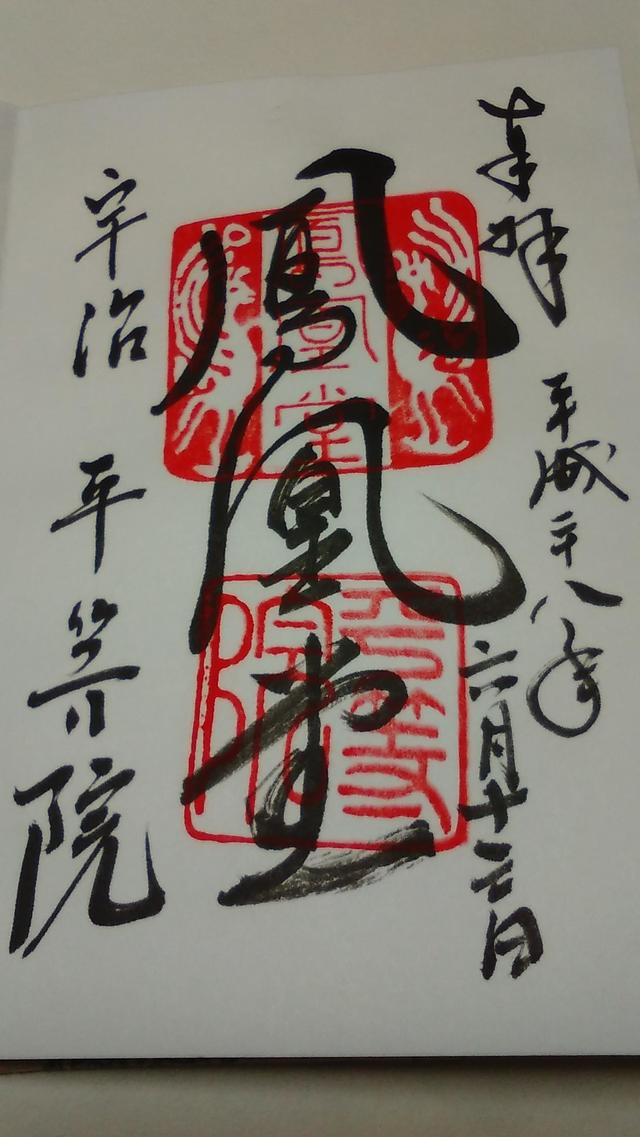 奉拝
平成二十八年
六月十三日
鳳凰堂
宇治 平等院
鳳凰堂
平等院